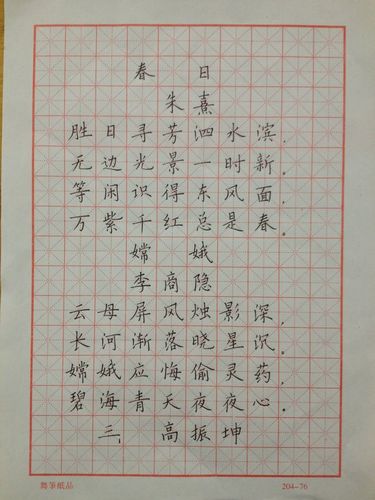 春 日
朱熹
胜日寻芳泗水滨，
无边光景一时新。
等闲识得东风面，
万紫千红总是春。
嫦 娥
李商隐
云母屏风烛影深，
长河渐落晓星沉。
嫦娥应悔偷灵药，
碧海青天夜夜心。
三、高振坤
舞筆纸品 204-76